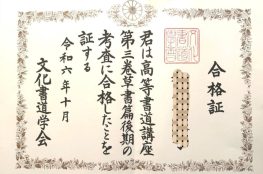 合格証
君は高等書道講座
第三巻草書篇後期の
考査に合格したことを
証する
令和六年十月
文化書道学会